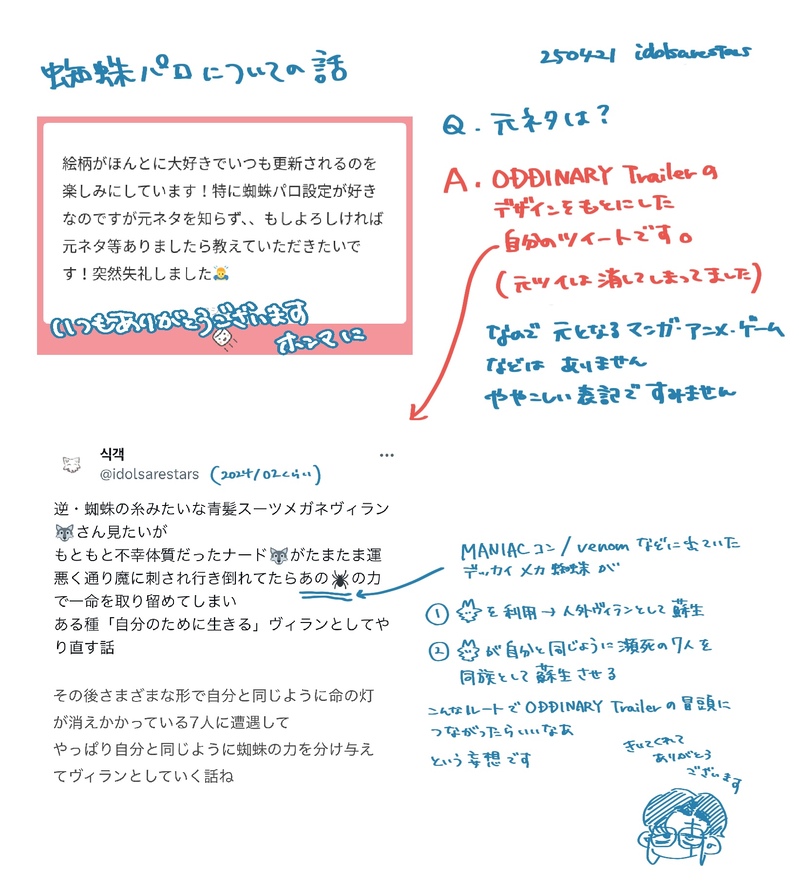 蜘蛛パロについての話
250421 idolsarestars
絵柄がほんとに大好きでいつも更新されるのを
楽しみにしています！特に蜘蛛パロ設定が好き
なのですが元ネタを知らず、、もしよろしければ
元ネタ等ありましたら教えていただきたいで
す！突然失礼しました🙇‍♀️
いつもありがとうございます
ホンマに
Q. 元ネタは？
A. ODDINARY Trailerの
デザインをもとにした
自分のツイートです。
(元ツイは消してしまってました)
なので 元となるマンガ・アニメ・ゲーム
などは ありません
ややこしい表記ですみません
식객
@idolsarestars (2024/02くらい)
逆・蜘蛛の糸みたいな青髪スーツメガネヴィラン
🐺さん見たいが
もともと不幸体質だったナード🐺がたまたま運
悪く通り魔に刺され行き倒れてたらあの🕷の力
で一命を取り留めてしまい
ある種「自分のために生きる」ヴィランとしてや
り直す話
その後さまざまな形で自分と同じように命の灯
が消えかかっている7人に遭遇して
やっぱり自分と同じように蜘蛛の力を分け与え
てヴィランとしていく話ね
MANIACコン/venomなどに出ていた
デッカイメカ蜘蛛が
① を利用→人外ヴィランとして蘇生
② が自分と同じように瀕死の7人を
同族として蘇生させる
こんなルートでODDINARY Trailerの冒頭に
つながったらいいなあ
という妄想です
きいてくれて
ありがとう
ございます